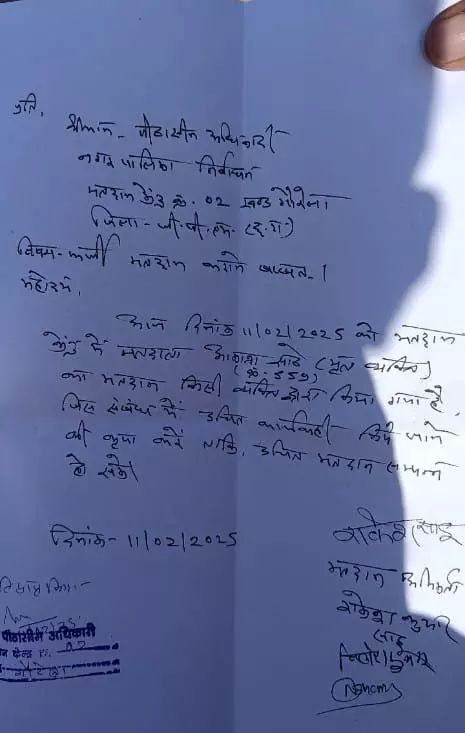 प्रति,
श्रीमान - पीठासीन अधिकारी
नगर पालिका निर्वाचन
मतदान केंद्र क्र. 02 खण्ड गौरेला
जिला - जी.पी.एम. (छ.ग.)
विषय - फर्जी मतदान करने बाबत् ।
महोदय,
आज दिनांक 11/02/2025 को मतदान
केंद्र में मतदाता साहू (मृत व्यक्ति)
(क्र. 559)
का मतदान किसी व्यक्ति द्वारा किया गया है,
जिस संबंध में उचित कार्यवाही किये जाने
की कृपा करें ताकि, उचित मतदान सम्पन्न
हो सके।
दिनांक - 11/02/2025
राकेश साहू
मतदान अभिकर्ता
राकेश कुमार
साहू
पीठासीन अधिकारी
02
गौरेला